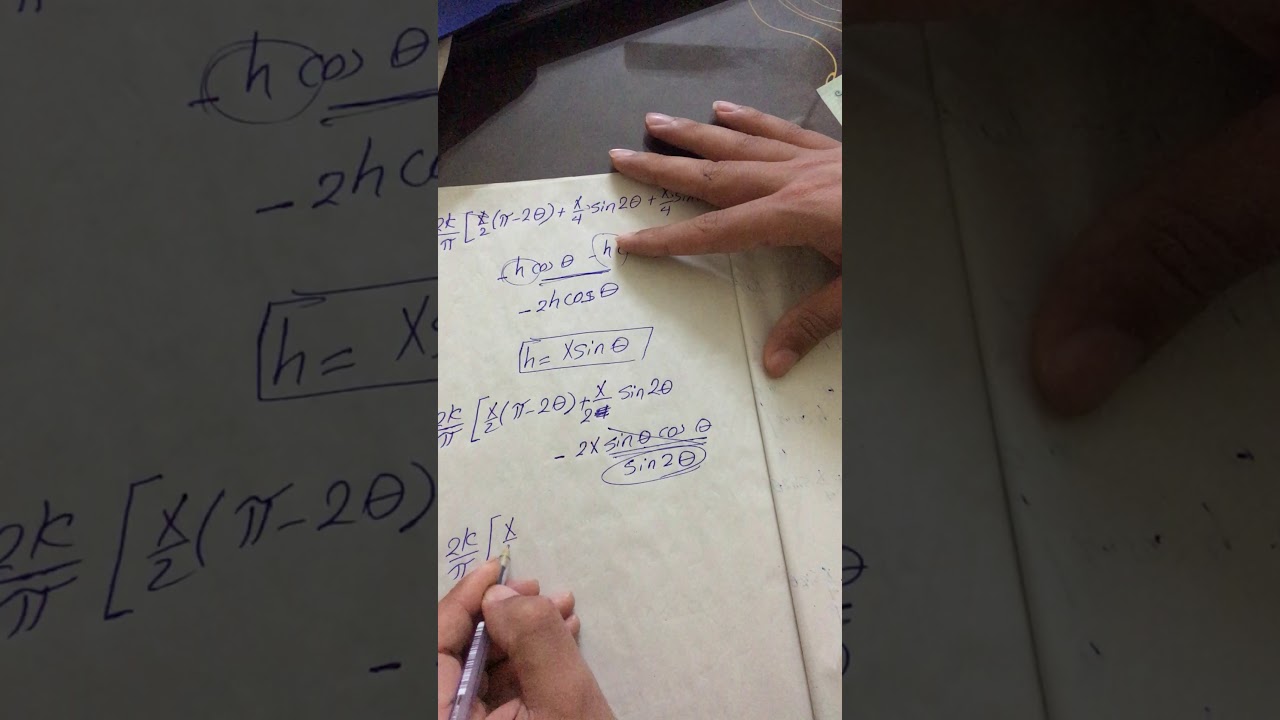 2k/π [x/2(π-2θ)+ x/4 sin2θ + x/4 sin
-h cos θ -h
-2h cos θ
h = x sin θ
2k/π [x/2(π-2θ)+ x/2 sin2θ
- 2x sin θ cos θ
sin 2θ
2k/π [x